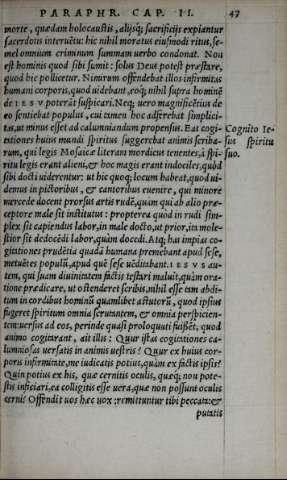 PARAPHR. CAP. II. 47
morte, quædam holocaustis, alijsq́; sacrificijs expiantur
sacerdotis interuētu: hic nihil moratus eiusmodi ritus, se-
mel omnium criminum summam uerbo condonat. Non
est hominis quod sibi sumit: solus Deus potest præstare,
quod hic pollicetur. Nimirum offendebat illos infirmitas
humani corporis, quod uidebant, eoq́; nihil supra hominē
de IESV poterāt suspicari. Neq; uero magnificētius de
eo sentiebat populus, cui tamen hoc adferebat simplici-
tas, ut minus esset ad calumniandum propensus. Eas cogi-
tationes huius mundi spiritus suggerebat animis scriba-
rum, qui legis Mosaicæ literam mordicus tenentes, à spi-
ritu legis erant alieni, & hoc magis erant indociles, quòd
sibi docti uiderentur: ut hic quoq; locum habeat, quod ui-
demus in pictoribus, & cantoribus euenire, qui minore
mercede docent prorsus artis rudē, quàm qui ab alio præ-
ceptore male sit institutus: propterea quòd in rudi sim-
plex sit capiendus labor, in male docto, ut prior, ita mole-
stior sit dedocēdi labor, quàm docēdi. Atq; has impias co-
gitationes prudētia quadā humana premebant apud sese,
metuētes populū, apud quē sese uēditabant. IESVS au-
tem, qui suam diuinitatem factis testari maluit, quàm ora-
tione prædicare, ut ostenderet scribis, nihil esse tam abdi-
tum in cordibus hominū quamlibet astutorū, quod ipsius
fugeret spiritum omnia scrutantem, & omnia perspicien-
tem: uersus ad eos, perinde quasi proloquuti fuissēt, quod
animo cogitarant, ait illis: Quur istas cogitationes ca-
lumniosas uersatis in animis uestris? Quur ex huius cor-
poris infirmitate, me iudicatis potius, quàm ex factis ipsis?
Quin potius ex his, quæ cernitis oculis, quæq́; non pote-
stis inficiari, ea colligitis esse uera, quæ non possunt oculis
cerni? Offendit uos hæc uox: remittuntur tibi peccata: &
putatis
Cognito Ie-
sus spiritu
suo.